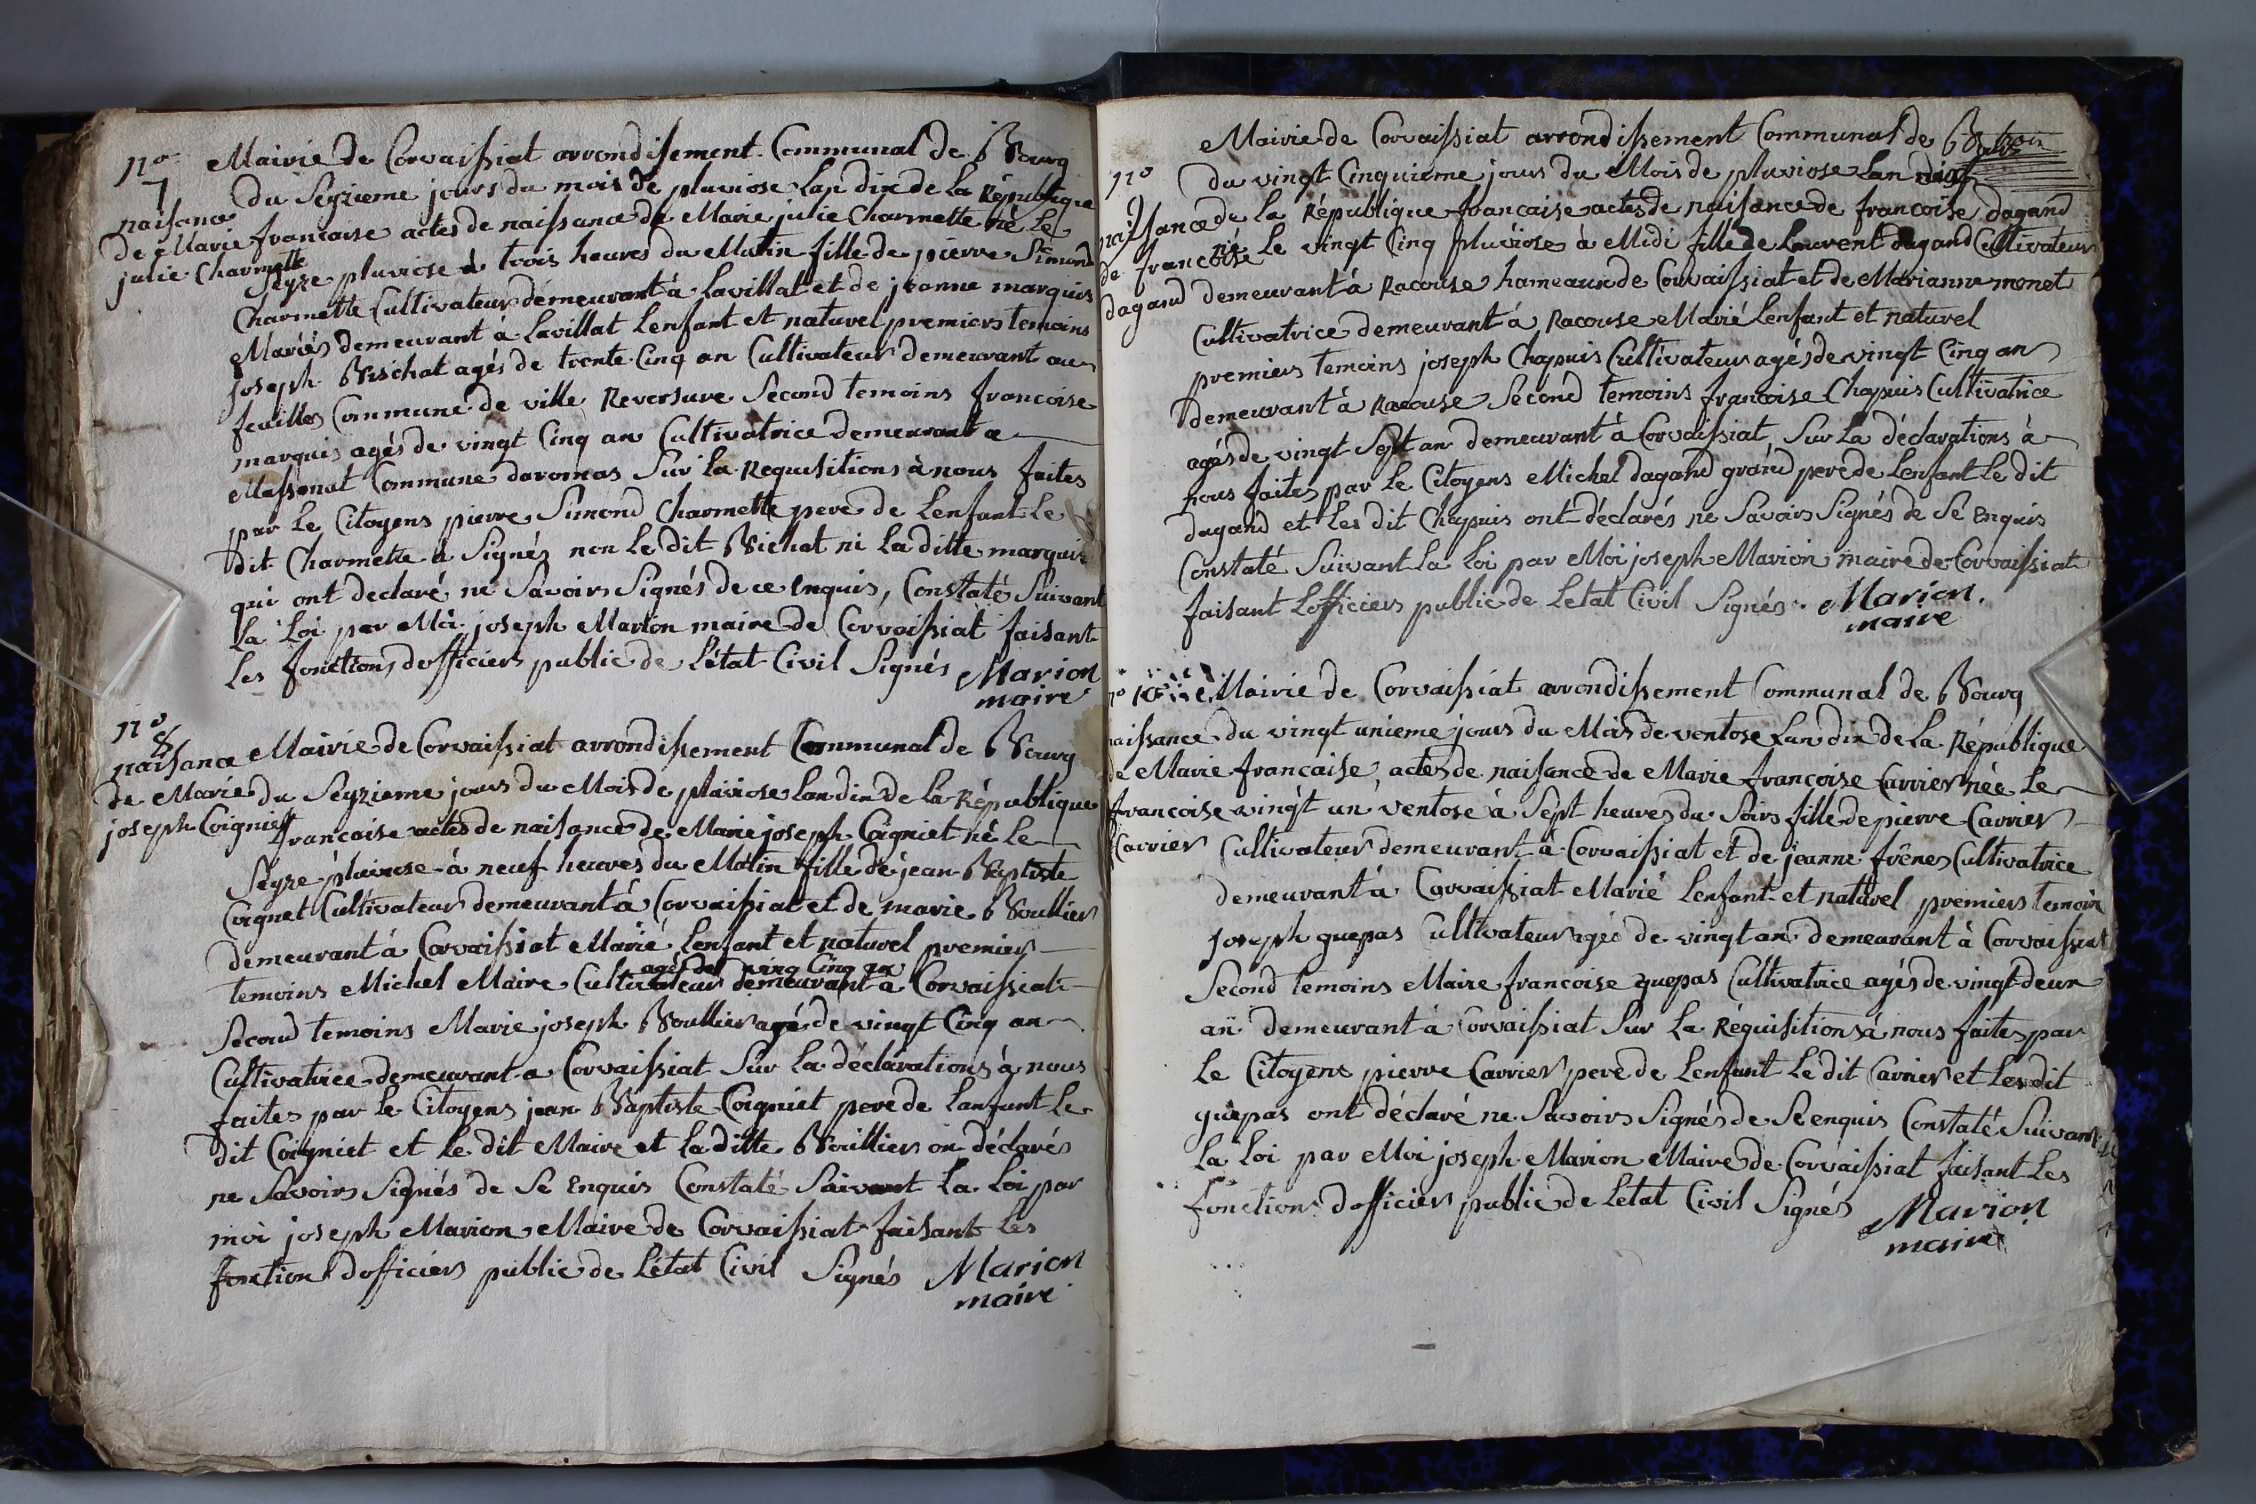 no
7
naisance
de Marie
julie Charmette
Mairie de Corvaissiat arrondisement Communal de Bourg
du Seyzieme jours du mois de pluviose Lan dix de La République
francaise actes de naissance de Marie julie Charmette né Le
Seyze pluviose à trois heures du Matin fille de pierre Simond
Charmette Cultivateur démeurant à Lavillat et de jeanne marquis
Mariés demeurant à Lavillat Lenfant et naturel premiers temoins
joseph Bischat agés de trente Cinq an Cultivateur demeurant au
feuilles Commune de ville Reversure Second temoins francoise
marquis agés de vingt Cinq an Cultivatrice demeurant a
Massonat Commune daromas Sur La Requisitions à nous faites
par Le Citoyens pierre Simond Charmette pere de Lenfant Le
dit Charmette a Signés non Le dit Bichat ni La ditte marquis
qui ont declaré ne Savoirs Signés de ce Enquis, Constaté Suivant
La Loi par Moi joseph Marion maire de Corvaissiat faisant
Les fonctions dofficiers public de Létat Civil Signés Marion
maire
no
8
naisance
de Marie
joseph Coigniet
Mairie de Corvaissiat arrondissement Communal de Bourg
du Seyzieme jours du Mois de pluviose Lan dix de La République
francaise actes de naisance de Marie joseph Coigniet né Le
Seyze pluviose à neuf heures du Matin fille de jean Baptiste
Coignet Cultivateur demeurant à Corvaissiat et de marie Boullier
demeurant à Corvaissiat Marié Lenfant et naturel premiers
agés de ving Cinq an
temoins Michel Maire Cultivateur demeurant a Corvaissiat
Second temoins Marie joseph Boullier agé de vingt Cinq an
Cultivatrice demeurant a Corvaissiat Sur La déclarations à nous
faites par Le Citoyens jean Baptiste Coigniet pere de Lanfant Le
dit Coigniet et Le dit Maire et La ditte Boulliers on déclarés
ne Savoirs Signés de Se Enquis Constaté Suivant La Loi par
moi joseph Marion Maire de Corvaissiat faisant Les
fonction dofficiers public de Létat Civil Signés Marion
maire
no
9
naissance
de francoise
dagand
Mairie de Corvaissiat arrondissement Communal de
du vingt Cinquieme jours du Mois de pluviose Lan dix
de La République francaise actes de naisance de francoise dagand
né Le vingt Cinq pluviose à Midi fille de Laurent dagand Cultivateur
demeurant à Racouse hameaux de Corvaissiat et de Marianne monet
Cultivatrice demeurant à Racouse Marié Lenfant et naturel
premiers temoins joseph Chapuis Cultivateur agés de vingt Cinq an
demeurant à Racouse Second temoins francoise Chapuis Cultivatrice
agés de vingt Sept an demeurant à Corvaissiat, Sur La déclarations à
nous faites par Le Citoyens Michel dagand grand pere de Lenfant Le dit
dagand et Les dit Chapuis ont déclarés ne Savoirs Signés de Se Enquis
Constaté Suivant La Loi par Moi joseph Marion maire de Corvaissiat
faisant Lofficiers public de Letat Civil Signés. Marion.
maire
no 10
naissance
de Marie
francoise
Carrier
Mairie de Corvaissiat arrondissement Communal de Bourg
du vingt unieme jours du Mois de ventose Lan dix de La République
francaise, actes de naisance de Marie francoise Carrier née Le
vingt un ventose à Sept heures du Soirs fille de pierre Carrier
Cultivateur demeurant à Corvaissiat et de jeanne frênes Cultivatrice
demeurant à Corvaissiat Marié Lenfant et naturel premiers temoin
joseph guepas Cultivateur agés de vingt an demeurant à Corvaissiat
Second temoins Maire francoise guepas Cultivatrice agés de vingt deux
an demeurant à Corvaissiat Sur La Réquisitions à nous faites par
Le Citoyens pierre Carrier pere de Lenfant Le dit Carrier et Les dit
guepas ont déclaré ne Savoirs Signés de Se enquis Constaté Suivant
La Loi par Moi joseph Marion Maire de Corvaissiat faisant Les
fonctions dofficier public de Letat Civil Signés Marion
maire